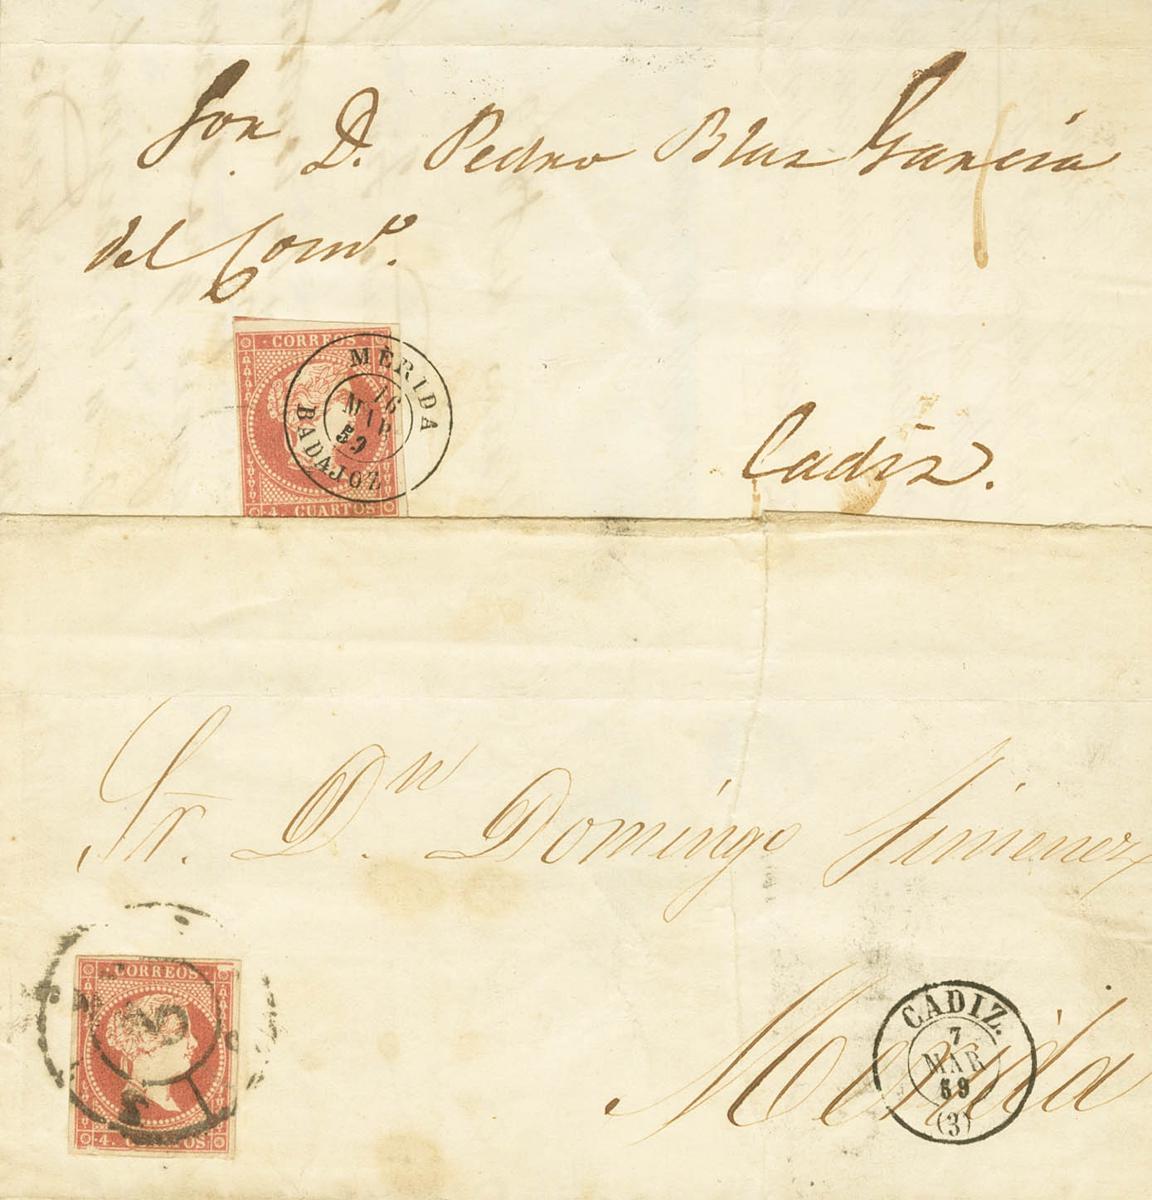 Sor. D. Pedro Blas Garcia
del Como.
CORREOS
MÉRIDA
16
MAR
59
BADAJOZ
4. CUARTOS
Cadiz.
Sr. Dn. Domingo Jimenez
CORREOS
4. CUARTOS
Merida
CÁDIZ.
7
MAR
59
(3)